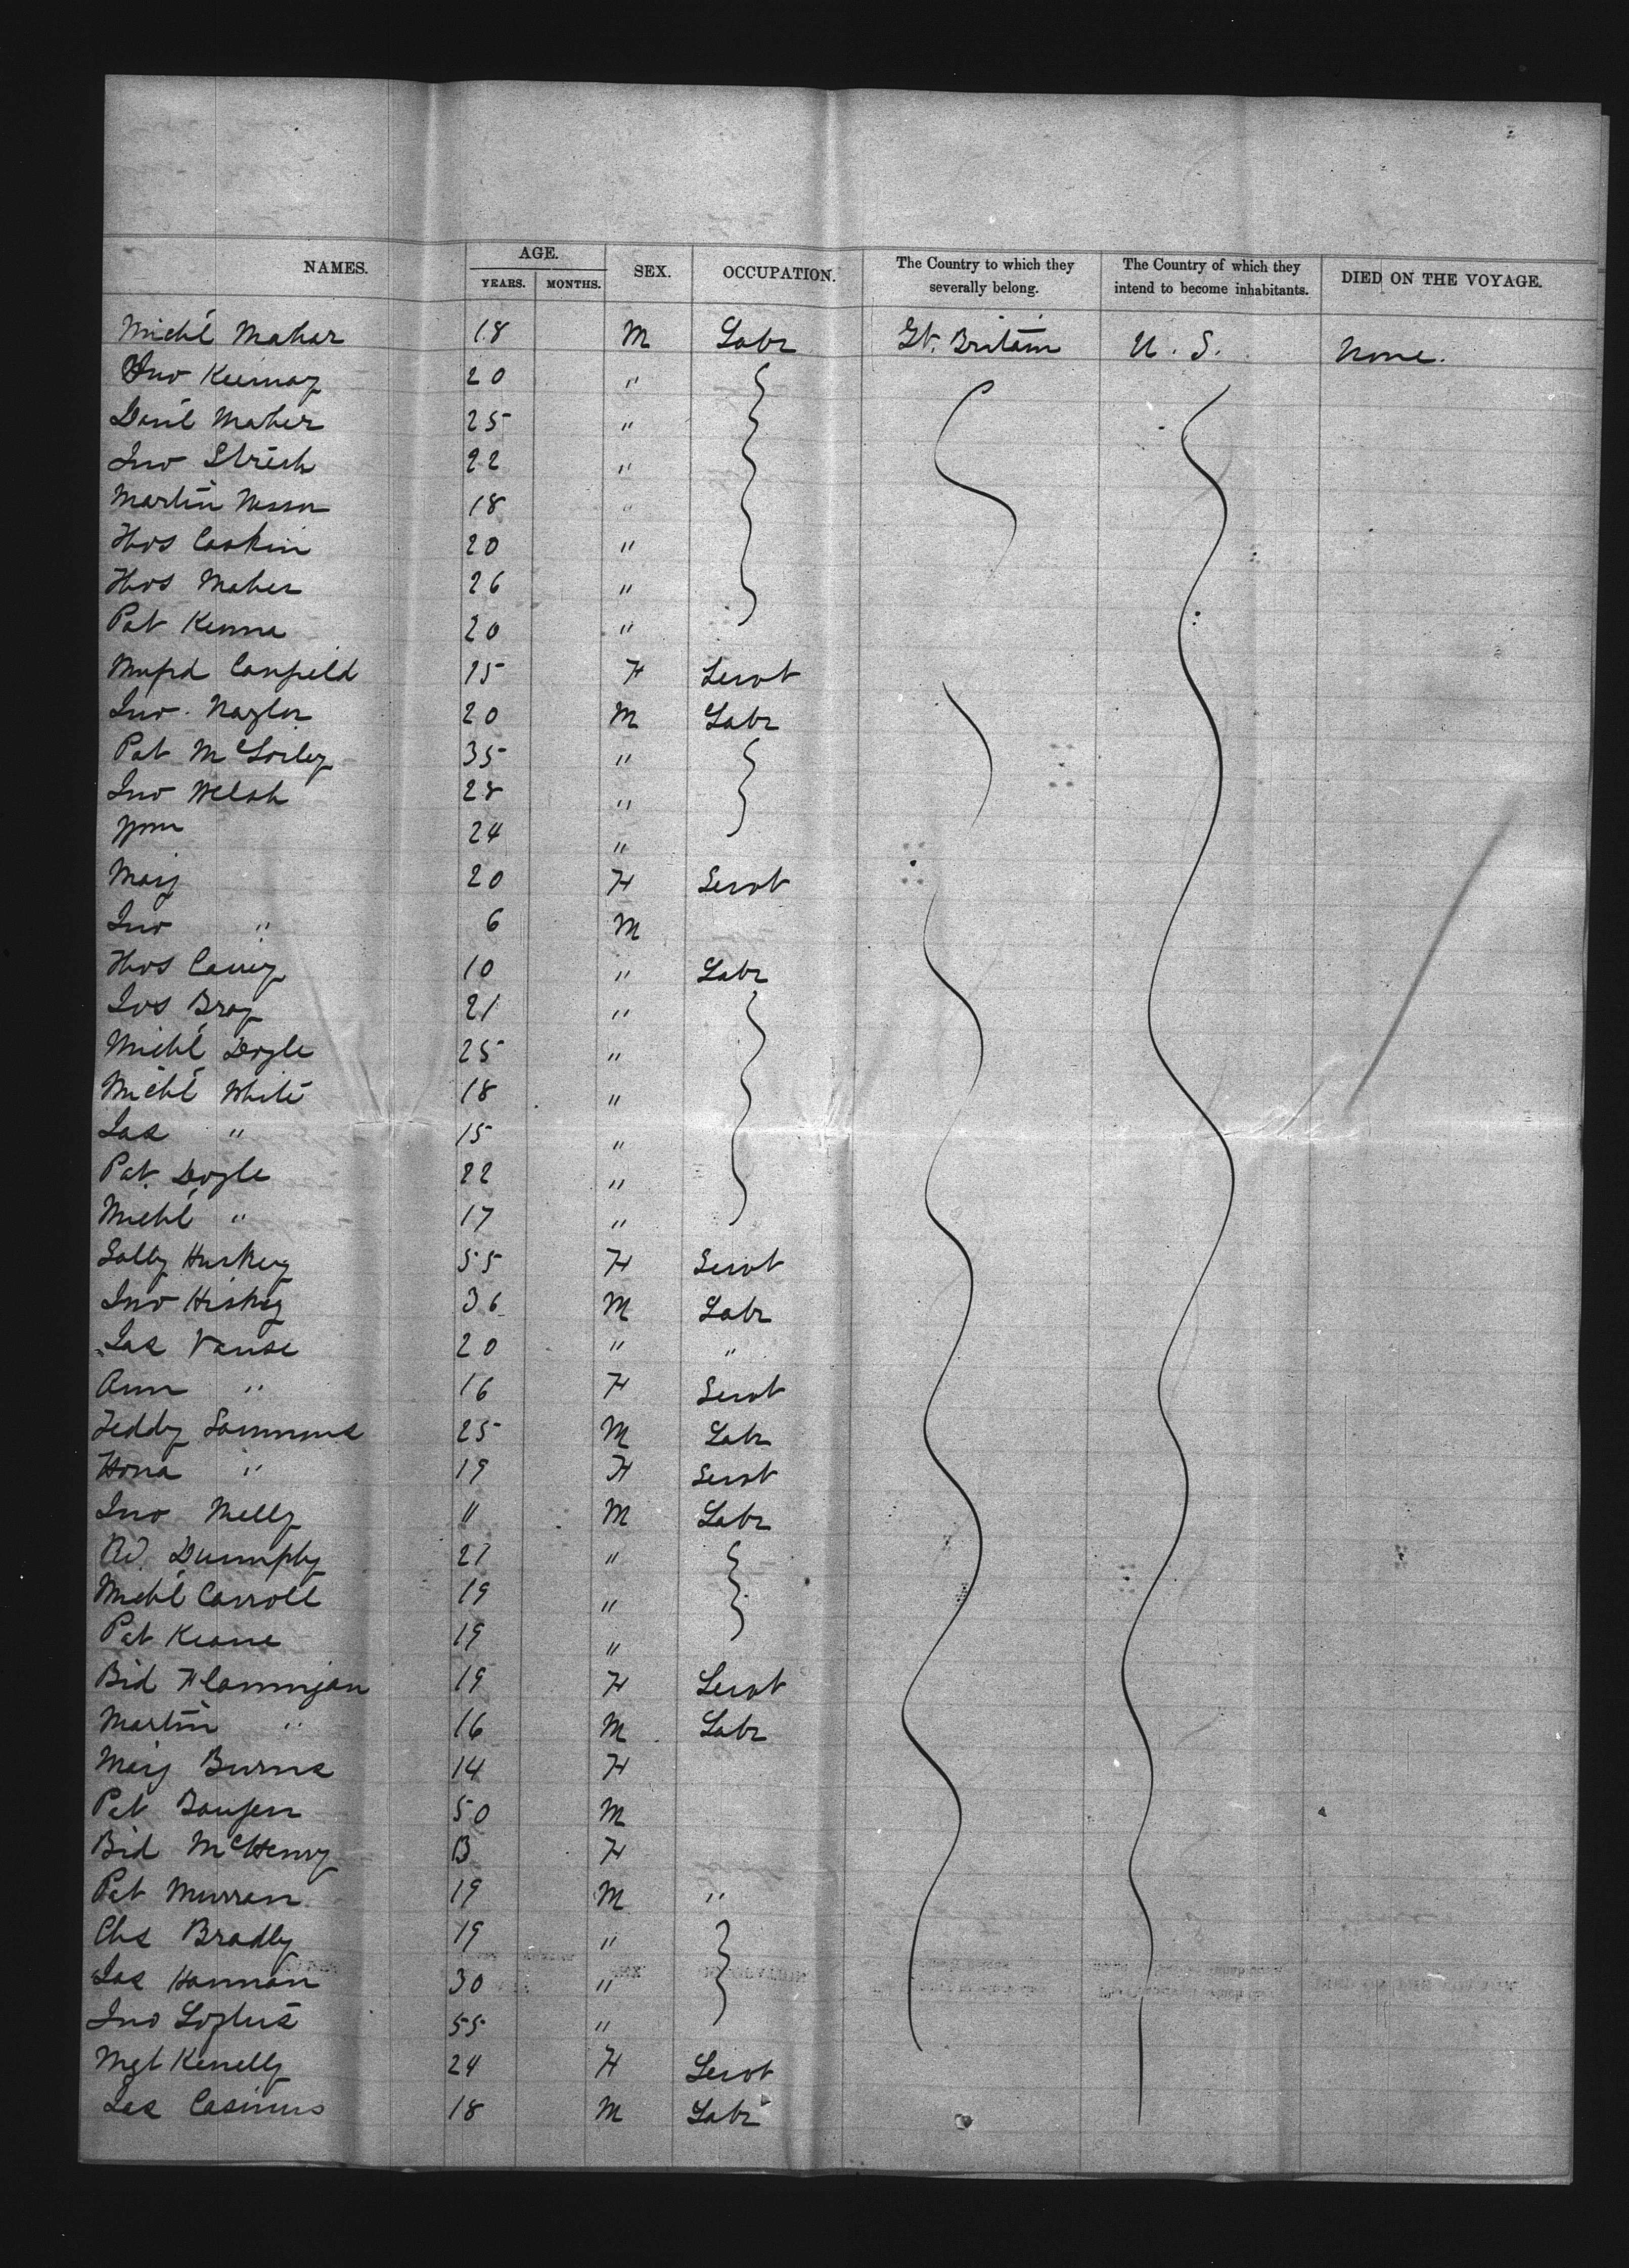 NAMES. AGE. SEX. OCCUPATION. The Country to which they severally belong. The Country of which they intend to become inhabitants. DIED ON THE VOYAGE.
YEARS. MONTHS.
Michl Mahar 18 M Labr Gt. Britain U. S. None.
Jno Kiernay 20 "
Danl Maher 25 "
Jno 22 "
Martin 18 "
Thos Caskin 20 "
Thos Maher 26 "
Pat Kenna 20 "
Canfield 15 F Servt
Jno. Naylor 20 M Labr
Pat McSorley 35 "
Jno Welsh 28 "
24 "
Mary 20 F Servt
Jno " 6 M
Thos Carrey 10 " Labr
Jos Bray 21 "
Michl Doyle 25 "
Michl White 18 "
Jas " 15 "
Pat Doyle 22 "
Michl " 17 "
Sally Huskey 55 F Servt
Jno Hiskey 36 M Labr
Jas Vanse 20 " "
Ann " 16 F Servt
Teddy Sammins 25 M Labr
Hona " 19 F Servt
Jno Melly " M Labr
Rd. Dumphy 21 "
Michl Carroll 19 "
Pat Keane 19 "
Bid Flannigan 19 F Servt
Martin " 16 M Labr
Mary Burns 14 F
Pat 50 M
Bid McHenry 13 F
Pat Murran 19 M "
Chs Bradly 19 "
Jas Hannan 30 "
Jno Loftus 55 "
Mgt Kenelly 24 F Servt
Jas 18 M Labr